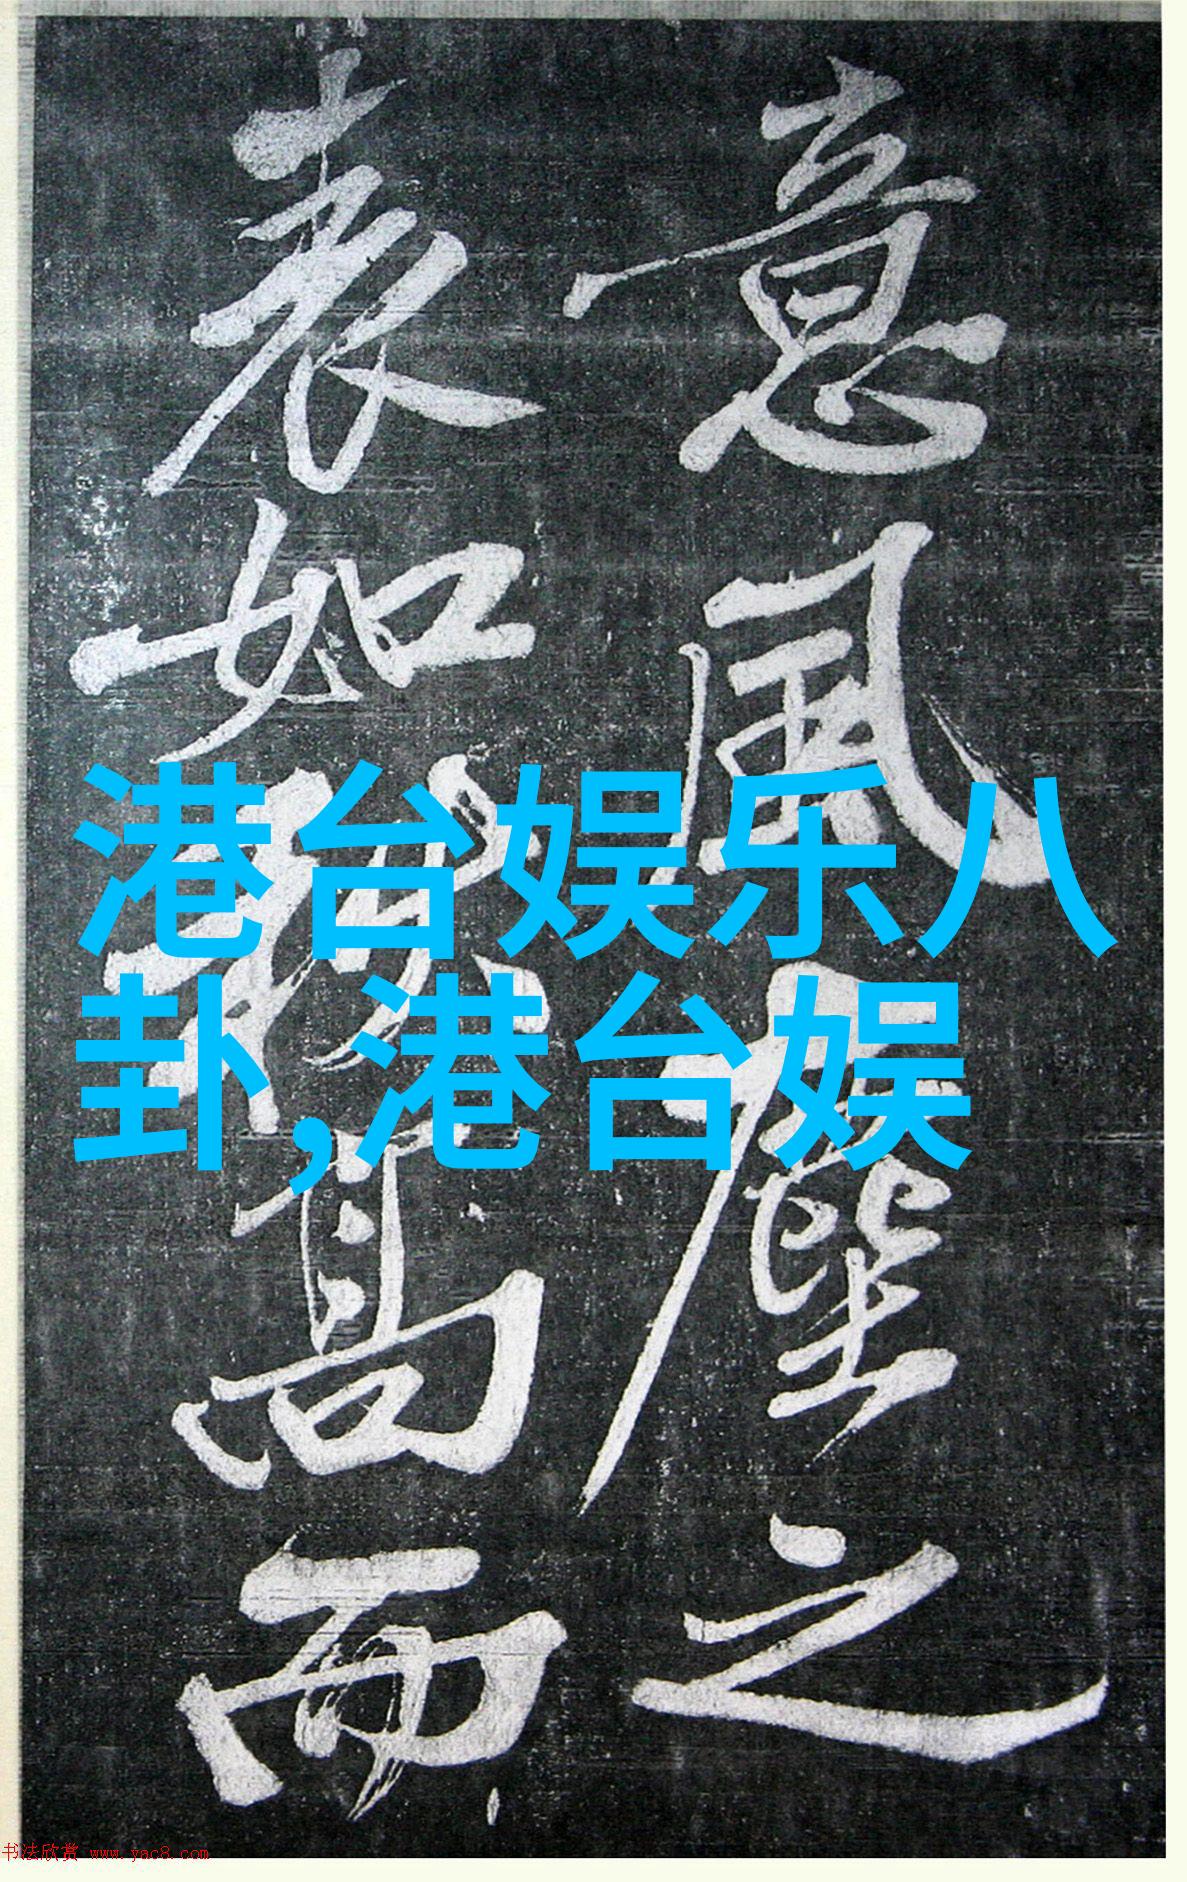 意風塵之
表如高而
港台娱乐八
卦,港台娱
书法欣赏 www.yac8.com